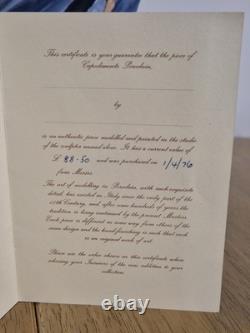 This certificate is your guarantee that the piece of
Capodimonte Porcelain,
by
is an authentic piece modelled and painted in the studio
of the sculptor named above. It has a current value of
£ 88-50 and was purchased on 1/4/76
from Messrs.
The art of modelling in Porcelain, with such exquisite
detail has existed in Italy since the early part of the
18th Century, and after some hundreds of years the
tradition is being continued by the present Masters.
Each piece is different in some way from others of the
same design and the hand finishing is such that each
is an original work of art.
Please use the value shown on this certificate when
advising your Insurers of the new addition to your
collection.